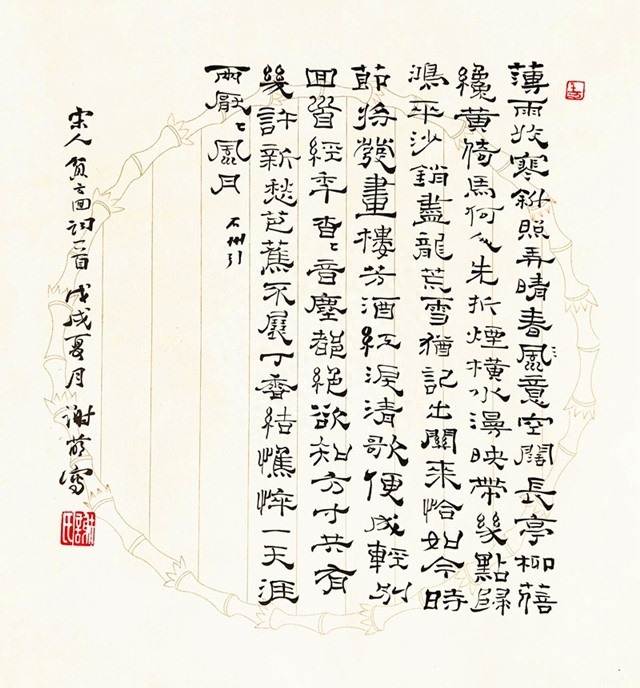 薄雨收寒斜照弄晴春風意空闊長亭柳蓓
纔黃倚馬何人先折煙橫水漫映帶幾點歸
鴻平沙銷盡龍荒雪猶記出關來恰如今時
節將發畫樓芳酒紅淚清歌便成輕別
回首經年杳〻音塵都絕欲知方寸共有
幾許新愁芭蕉不展丁香結憔悴一天涯
兩厭〻風月
石州引
宋人賀方回詞一首戊戌夏月謝寫
謝氏